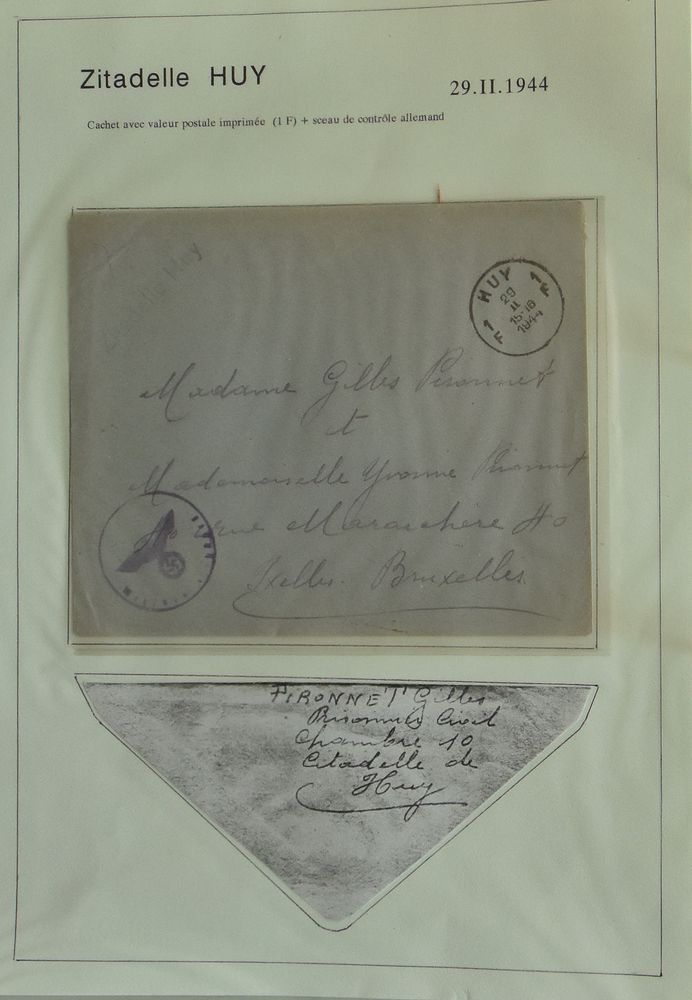 Zitadelle HUY
29.II.1944
Cachet avec valeur postale imprimée (1 F) + sceau de contrôle allemand
Zitadelle Huy
HUY
1 F
29
II
15-16
1944
F 1
Madame Gilles Pironnet
et
Mademoiselle Yvonne Pironnet
40 rue Maraichère 40
Ixelles. Bruxelles
PIRONNET Gilles
Prisonnier Civil
Chambre 10
Citadelle de
Huy